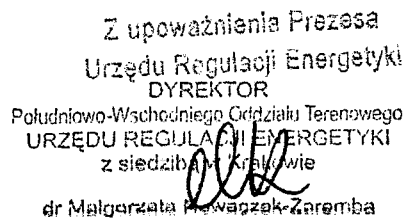 Z upoważnienia Prezesa
Urzędu Regulacji Energetyki
DYREKTOR
Południowo-Wschodniego Oddziału Terenowego
URZĘDU REGULACJI ENERGETYKI
z siedzibą w Krakowie
dr Małgorzata Nowaczek-Zaremba